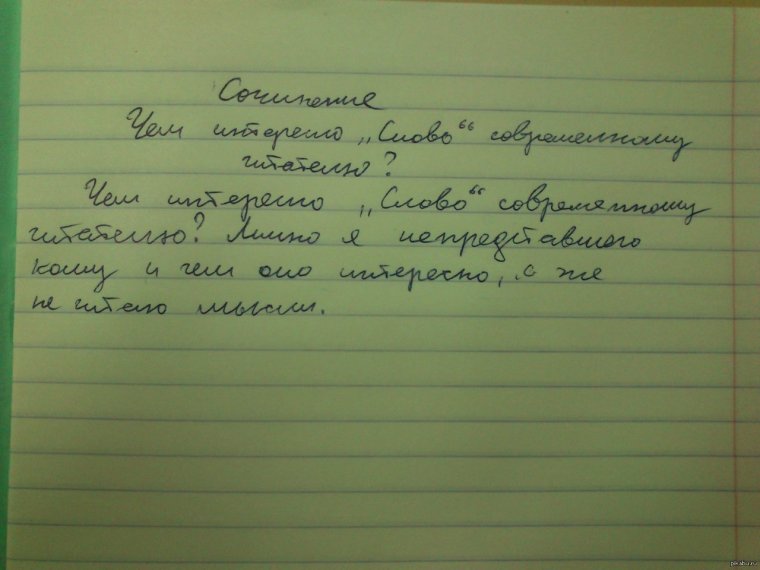 Сочинение
Чем интересно „Слово“ современному
читателю?
Чем интересно „Слово“ современному
читателю? Лично я непредставляю
кому и чем оно интересно, я же
не читаю мысли.
pikabu.ru